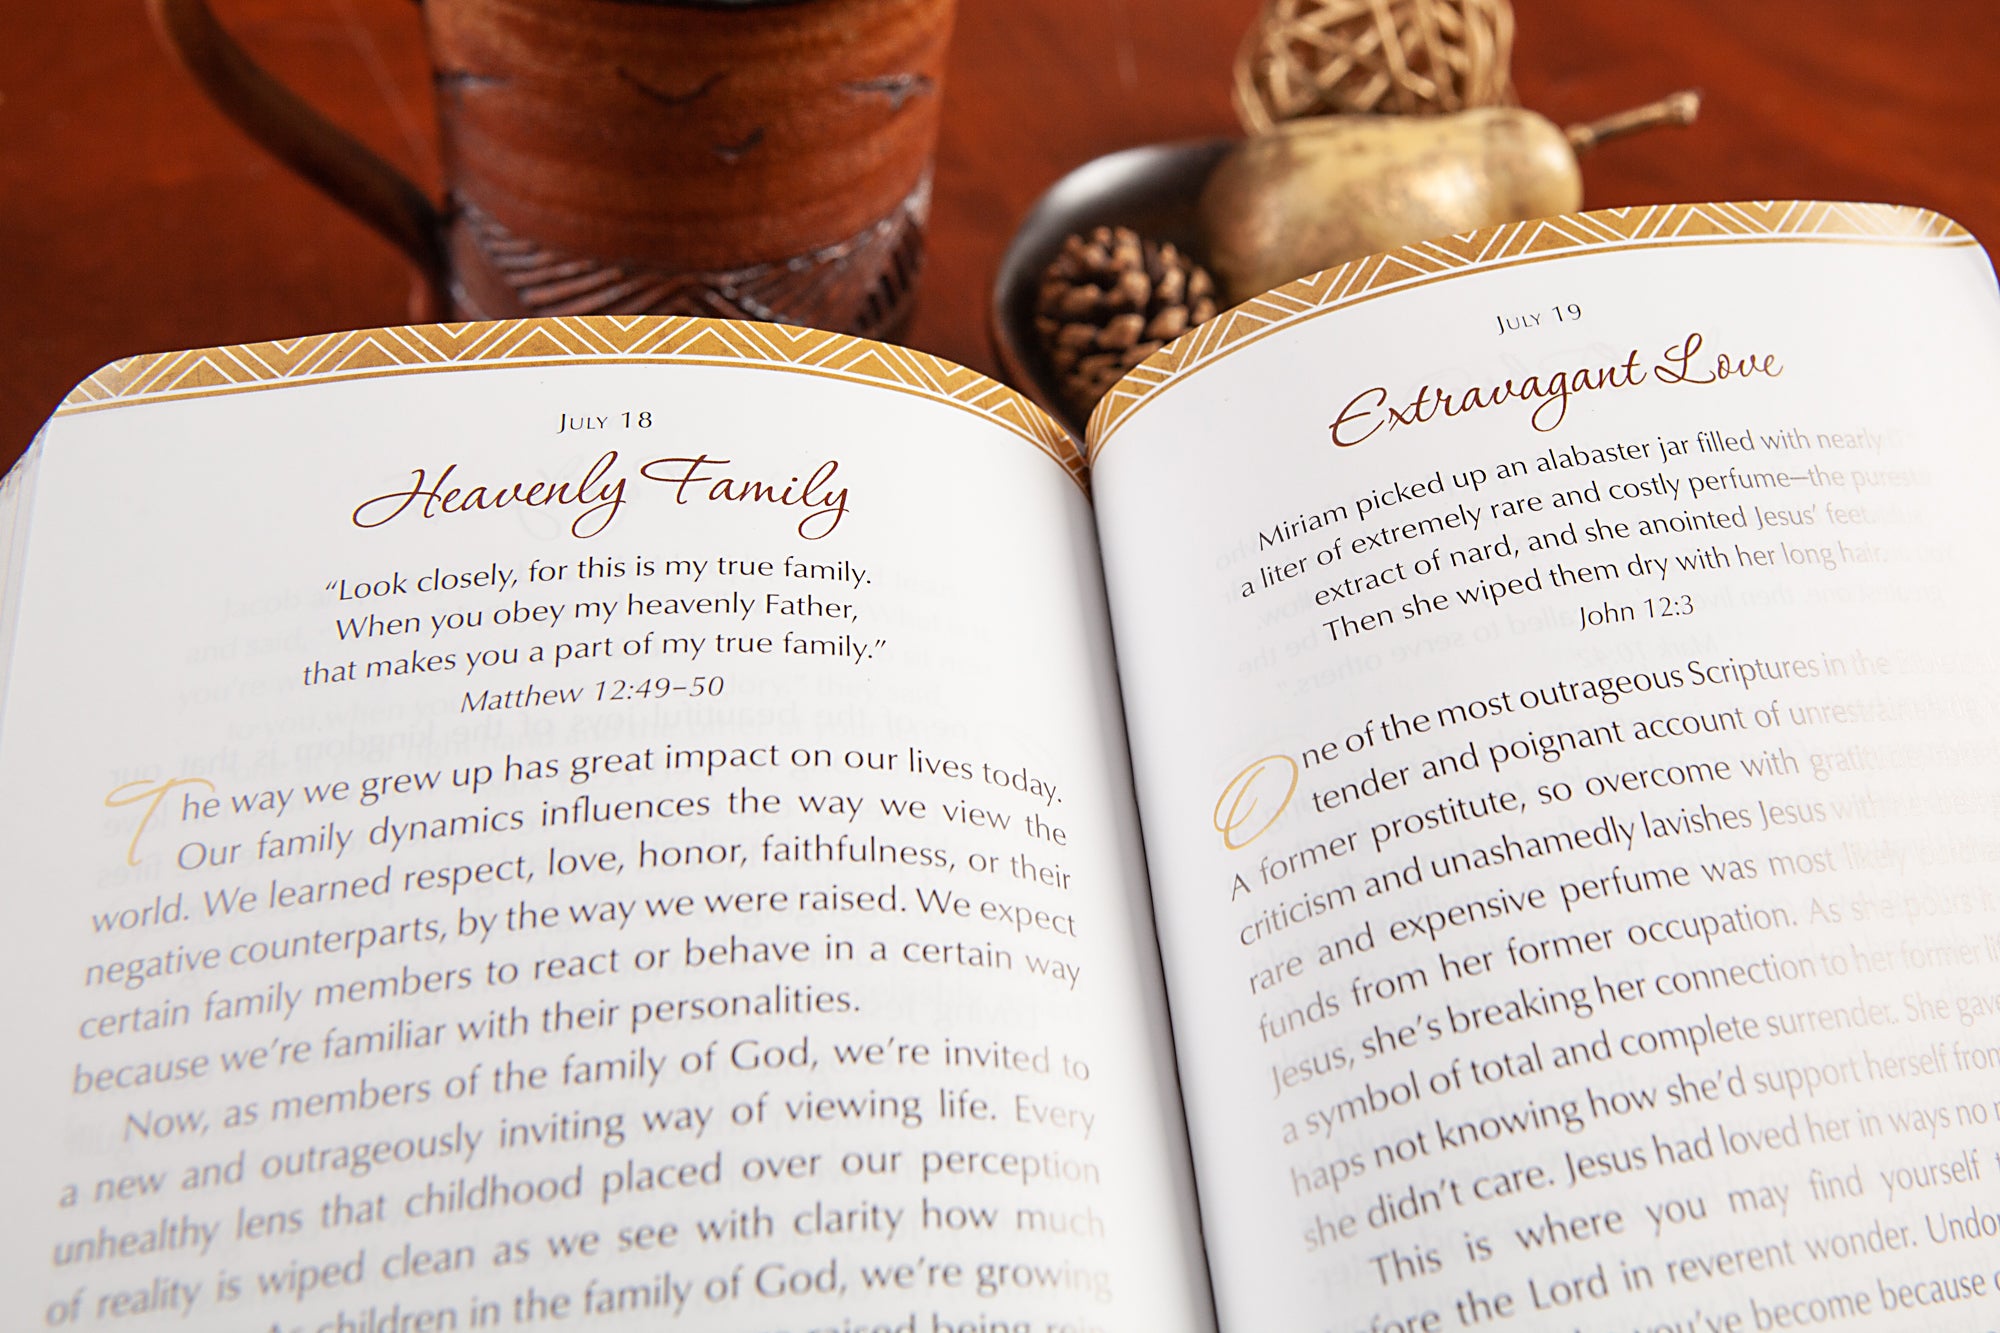 July 18
Heavenly Family
“Look closely, for this is my true family.
When you obey my heavenly Father,
that makes you a part of my true family.”
Matthew 12:49–50
The way we grew up has great impact on our lives today.
Our family dynamics influences the way we view the
world. We learned respect, love, honor, faithfulness, or their
negative counterparts, by the way we were raised. We expect
certain family members to react or behave in a certain way
because we’re familiar with their personalities.
Now, as members of the family of God, we’re invited to
a new and outrageously inviting way of viewing life. Every
unhealthy lens that childhood placed over our perception
of reality is wiped clean as we see with clarity how much
children in the family of God, we’re growing
raised being
July 19
Extravagant Love
Miriam picked up an alabaster jar filled with nearly
a liter of extremely rare and costly perfume—the purest
extract of nard, and she anointed Jesus’ feet.
Then she wiped them dry with her long hair.
John 12:3
One of the most outrageous Scriptures in the
tender and poignant account of
A former prostitute, so overcome with
criticism and unashamedly lavishes Jesus
rare and expensive perfume was most likely
funds from her former occupation. As she pours it
Jesus, she’s breaking her connection to her former
a symbol of total and complete surrender. She gave
haps not knowing how she’d support herself from
she didn’t care. Jesus had loved her in ways no
This is where you may find yourself
fore the Lord in reverent wonder.
you’ve become because